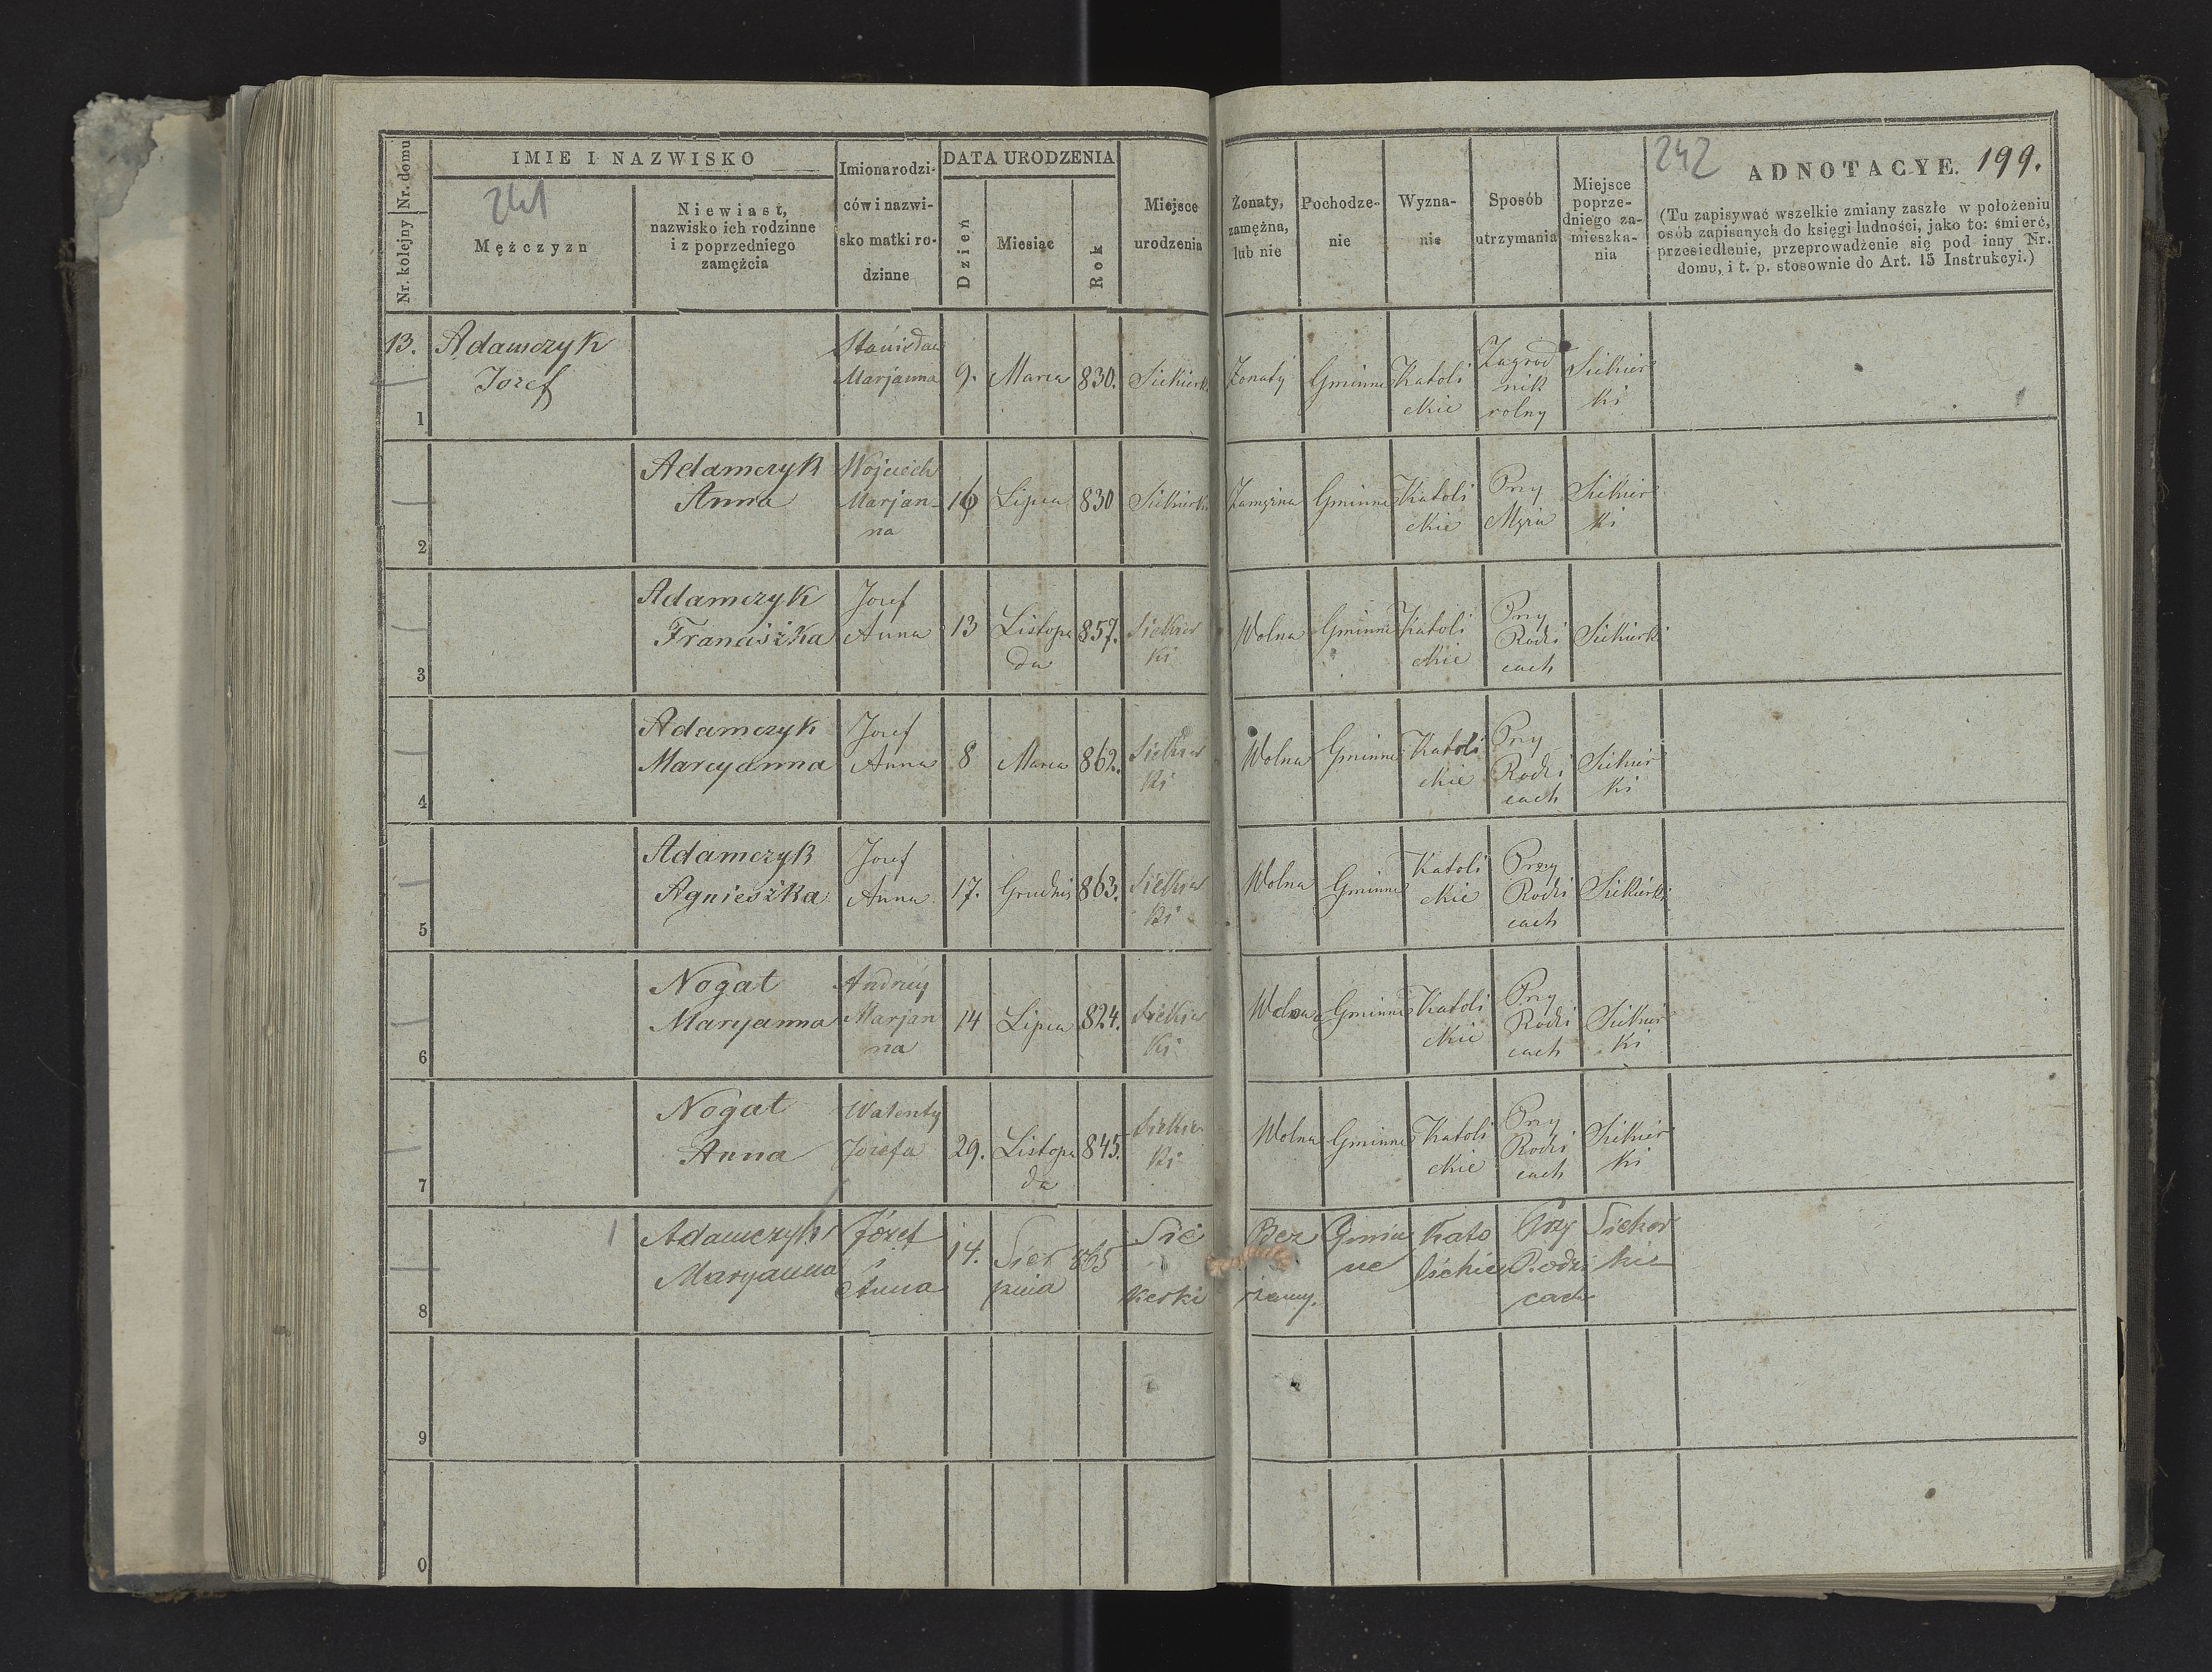 Nr. domu
Nr. kolejny
IMIE I NAZWISKO
241
Mężczyzn
Niewiast,
nazwisko ich rodzinne
i z poprzedniego
zamęźcia
Imiona rodzi-
ców i nazwi-
sko matki ro-
dzinne
DATA URODZENIA
Dzień
Miesiąc
Rok
Miejsce
urodzenia
Żonaty,
zamężna,
lub nie
Pochodze-
nie
Wyzna-
nie
Sposób
utrzymania
Miejsce
poprze-
dniego za-
mieszka-
nia
242
ADNOTACYE. 199.
(Tu zapisywać wszelkie zmiany zaszłe w położeniu
osób zapisanych do księgi ludności, jako to: śmierć,
przesiedlenie, przeprowadzenie się pod inny Nr.
domu, i t. p. stosownie do Art. 15 Instrukcyi.)
13.
1
Adamczyk
Jozef
Stanisław
Marjanna
9.
Marca
830.
Siekierki
Zonaty
Gminne
Katoli
ckie
Zagrod
nik
rolny
Siekier
ki
2
Adamczyk
Anna
Wojciech
Marjan-
na
Lipca
830
Siekierki
Zamężna
Gminne
Katoli
ckie
Przy
Mężu
Siekier
ki
3
Adamczyk
Franciszka
Jozef
Anna
13
Listopa
da
857.
Siekier
ki
Wolna
Gminne
Katoli
ckie
Przy
Rodzi
cach
Siekierki
4
Adamczyk
Maryanna
Jozef
Anna
8
Marca
862.
Siekier
ki
Wolna
Gminne
Katoli
ckie
Przy
Rodzi
cach
Siekier
ki
5
Adamczyk
Agnieszka
Jozef
Anna
17.
Grudnia
863.
Siekier
ki
Wolna
Gminne
Katoli
ckie
Przy
Rodzi
cach
Siekierki
6
Nogat
Maryanna
Andrzej
Marjan
na
14
Lipca
824.
Siekier
ki
Wolna
Gminne
Katoli
ckie
Przy
Rodzi
cach
Siekier
ki
7
Nogat
Anna
Walenty
Jozefa
29.
Listopa
da
845.
Siekier
ki
Wolna
Gminne
Katoli
ckie
Przy
Rodzi
cach
Siekier
ki
8
Adamczyk
Maryanna
Józef
i
Anna
14.
Sier
pnia
865
Sie
kerki
Bez
żenny.
Gmin
ne
Kato
lickie
Przy
Rodzi
cach
9
0